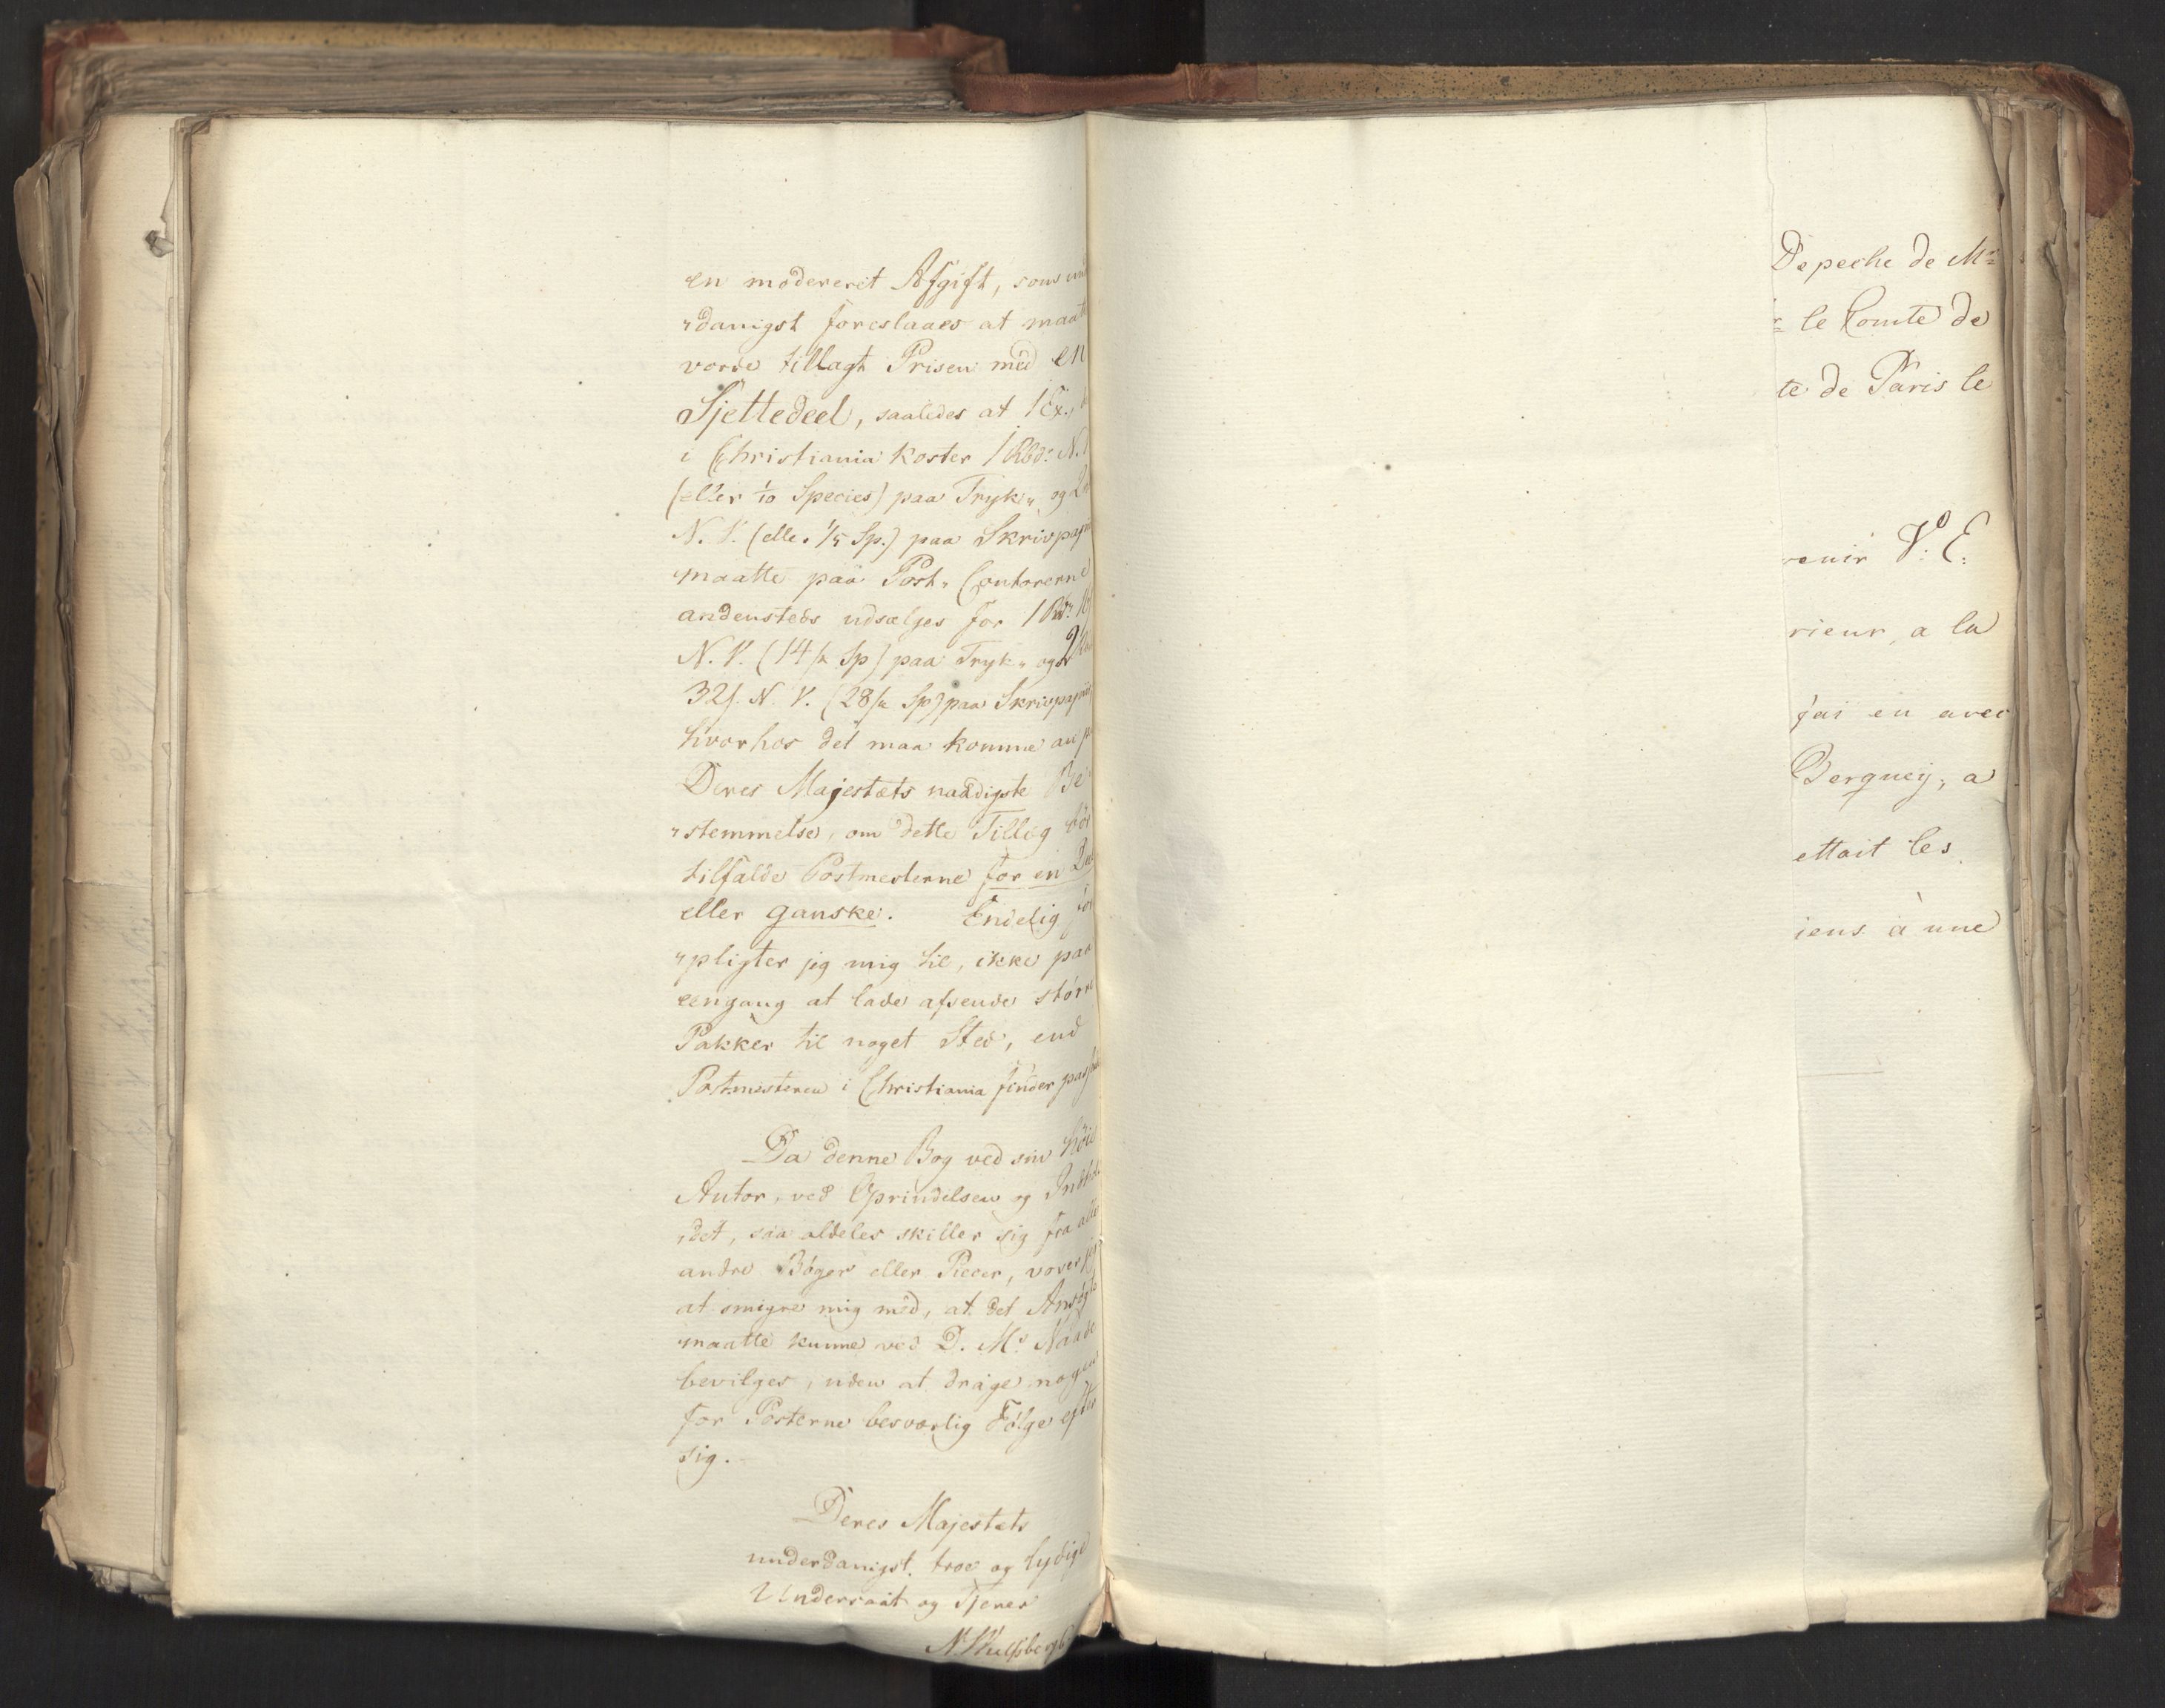 en modereret Afgift, som un
danigst foreslaaes at maat
vorde tillagt Prisen med en
Sjettedeel, saaledes at 1 Ex.,
i Christiania koster 1 Rbd. N.
(eller 1/10 Species) paa Tryk- og
N. V. (elle. 1/5 Sp.) paa Skrivpap
maatte paa Post-Contorerne
andensteds udsælges for 1 Rbd.
N. V. (14 ſ Sp) paa Tryk- og 2
32 ſ N. V. (28 ſ Sp) paa Skrivpapiir,
hvorhos det maa komme an p
Deres Majestæts naadigste Be-
-stemmelse, om dette Tillæg bör
tilfalde Postmesterne for en
eller ganske. Endelig for
-pligter jeg mig til, ikke paa
eengang at lade afsende större
Pakker til noget Sted, end
Postmesteren i Christiania finder pas
Da denne Bog ved sin höie
Autor, ved Oprindelsen og Indhol
-det, saa aldeles skiller sig fra alle
andre Böger eller Piecer, vover jeg
at smigre mig med, at det Ansögte
maatte kunne ved D. Ms. Naade
bevilges, uden at drage nogen
for Posterne besværlig Fölge efter
sig.
Deres Majestæts
underdanigst, troe og lydige
Undersaat og Tjener
N. Wulfsberg
Depeche de Mr
le Comte de
te de Paris le
venir V. E.
rieur, a la
j'ai eu avec
Berquey, a
ettait les
iens à une